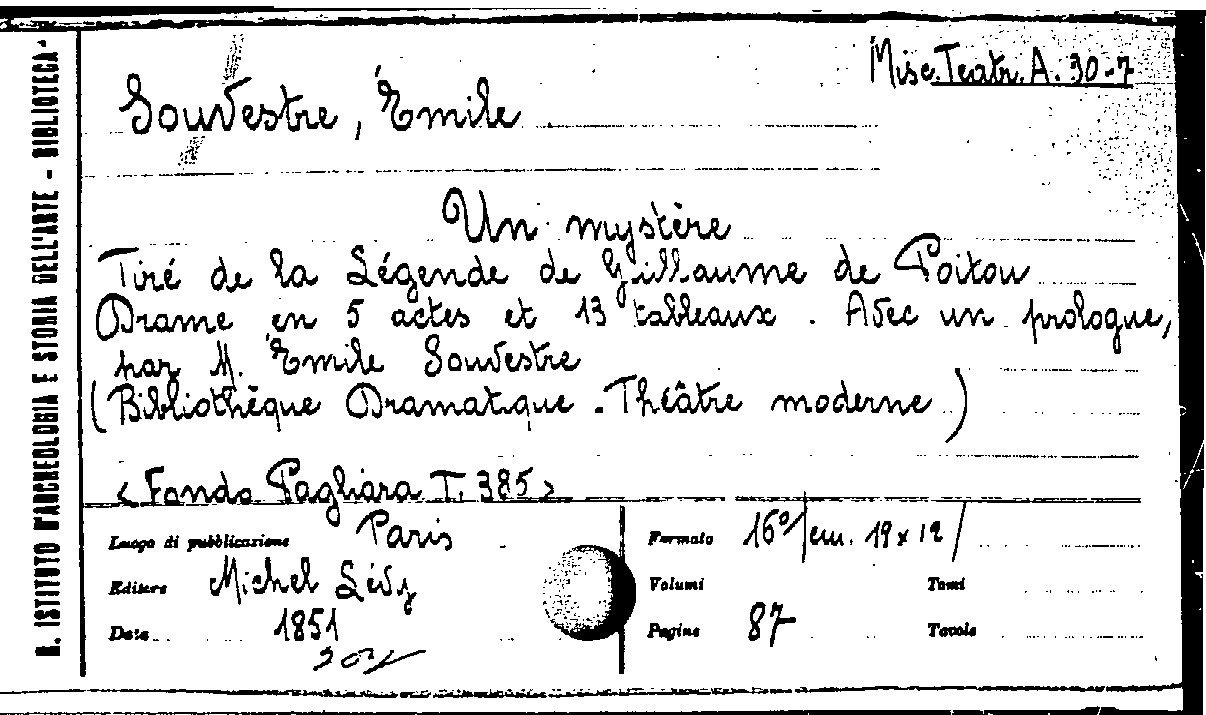 R. ISTITUTO D'ARCHEOLOGIA E STORIA DELL'ARTE - BIBLIOTECA-
Misc. Teatr. A. 30-7
Souvestre, Émile
Un mystère
Tiré de la Légende de Guillaume de Poitou
Drame en 5 actes et 13 tableaux. Avec un prologue,
par M. Émile Souvestre
(Bibliothèque Dramatique - Théâtre moderne)
< Fondo Pagliara T. 385 >
Luogo di pubblicazione Paris
Editore Michel Lévy
Data 1851
Formato 16°/cm. 19 x 12/
Volumi Tomi
Pagine 87 Tavole